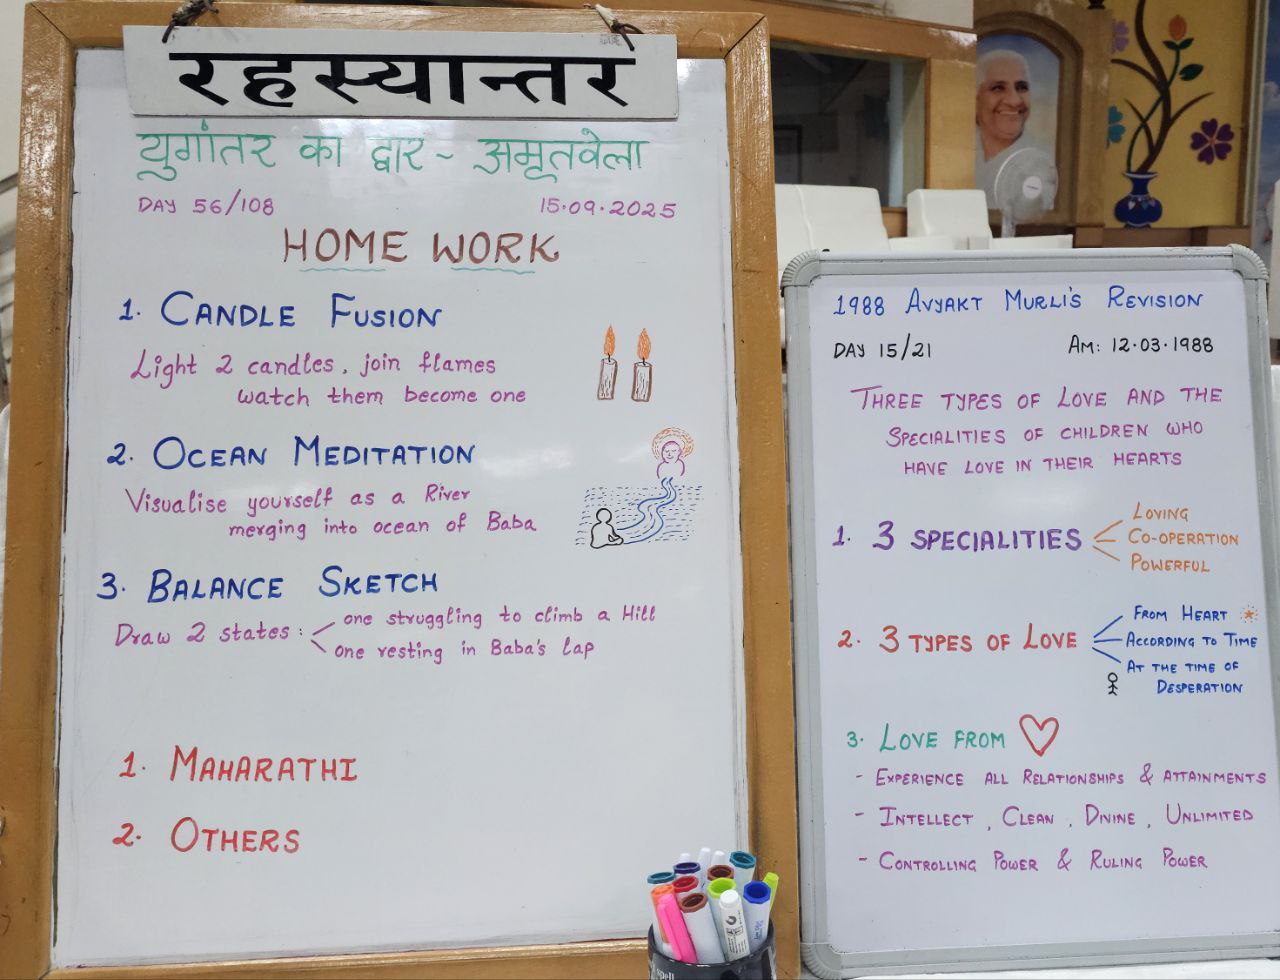 रहस्यान्तर
युगांतर का द्वार - अमृतवेला
DAY 56/108
15.09.2025
HOME WORK
1. CANDLE FUSION
Light 2 candles, join flames
watch them become one
2. OCEAN MEDITATION
Visualise yourself as a River
merging into ocean of Baba
3. BALANCE SKETCH
Draw 2 states:
one struggling to climb a Hill
one resting in Baba's lap
1. MAHARATHI
2. OTHERS
1988 AVYAKT MURLI'S REVISION
DAY 15/21
AM: 12.03.1988
THREE TYPES OF LOVE AND THE
SPECIALITIES OF CHILDREN WHO
HAVE LOVE IN THEIR HEARTS
1. 3 SPECIALITIES
LOVING
CO-OPERATION
POWERFUL
2. 3 TYPES OF LOVE
FROM HEART
ACCORDING TO TIME
AT THE TIME OF
DESPERATION
3. LOVE FROM
- EXPERIENCE ALL RELATIONSHIPS & ATTAINMENTS
- INTELLECT, CLEAN, DIVINE, UNLIMITED
- CONTROLLING POWER & RULING POWER